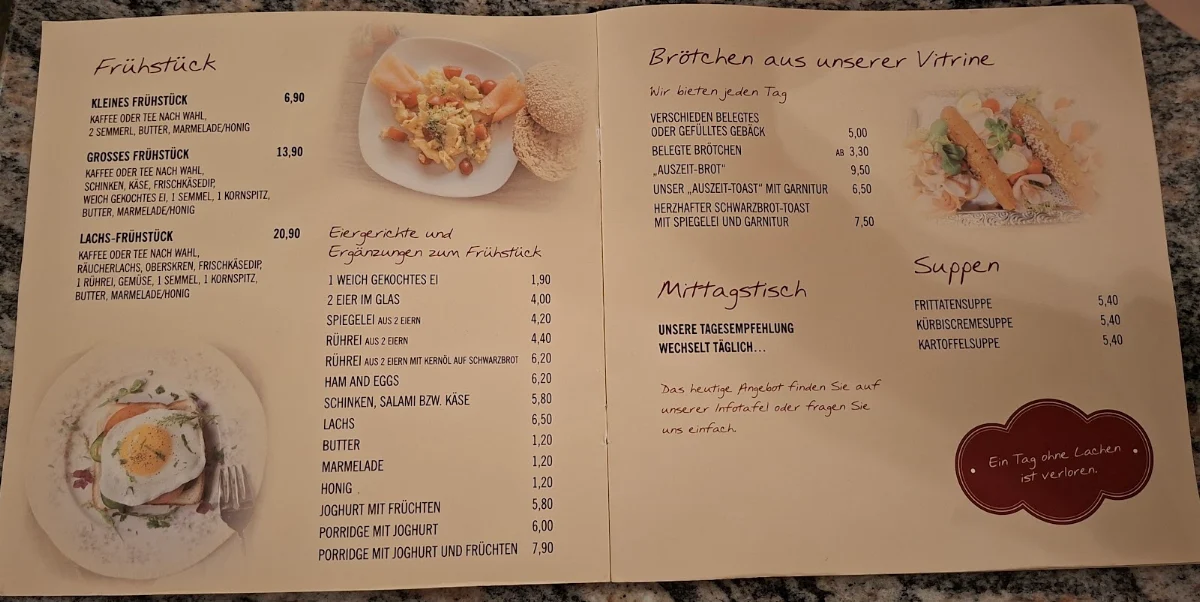 Frühstück
KLEINES FRÜHSTÜCK 6,90
KAFFEE ODER TEE NACH WAHL,
2 SEMMERL, BUTTER, MARMELADE/HONIG
GROSSES FRÜHSTÜCK 13,90
KAFFEE ODER TEE NACH WAHL,
SCHINKEN, KÄSE, FRISCHKÄSEDIP,
WEICH GEKOCHTES EI, 1 SEMMEL, 1 KORNSPITZ,
BUTTER, MARMELADE/HONIG
LACHS-FRÜHSTÜCK 20,90
KAFFEE ODER TEE NACH WAHL,
RÄUCHERLACHS, OBERSKREN, FRISCHKÄSEDIP,
1 RÜHREI, GEMÜSE, 1 SEMMEL, 1 KORNSPITZ,
BUTTER, MARMELADE/HONIG
Eiergerichte und
Ergänzungen zum Frühstück
1 WEICH GEKOCHTES EI 1,90
2 EIER IM GLAS 4,00
SPIEGELEI AUS 2 EIERN 4,20
RÜHREI AUS 2 EIERN 4,40
RÜHREI AUS 2 EIERN MIT KERNÖL AUF SCHWARZBROT 6,20
HAM AND EGGS 6,20
SCHINKEN, SALAMI BZW. KÄSE 5,80
LACHS 6,50
BUTTER 1,20
MARMELADE 1,20
HONIG 1,20
JOGHURT MIT FRÜCHTEN 5,80
PORRIDGE MIT JOGHURT 6,00
PORRIDGE MIT JOGHURT UND FRÜCHTEN 7,90
Brötchen aus unserer Vitrine
Wir bieten jeden Tag
VERSCHIEDEN BELEGTES
ODER GEFÜLLTES GEBÄCK 5,00
BELEGTE BRÖTCHEN AB 3,30
„AUSZEIT-BROT" 9,50
UNSER „AUSZEIT-TOAST" MIT GARNITUR 6,50
HERZHAFTER SCHWARZBROT-TOAST
MIT SPIEGELEI UND GARNITUR 7,50
Mittagstisch
UNSERE TAGESEMPFEHLUNG
WECHSELT TÄGLICH...
Das heutige Angebot finden Sie auf
unserer Infotafel oder fragen Sie
uns einfach.
Suppen
FRITTATENSUPPE 5,40
KÜRBISCREMESUPPE 5,40
KARTOFFELSUPPE 5,40
Ein Tag ohne Lachen
ist verloren.